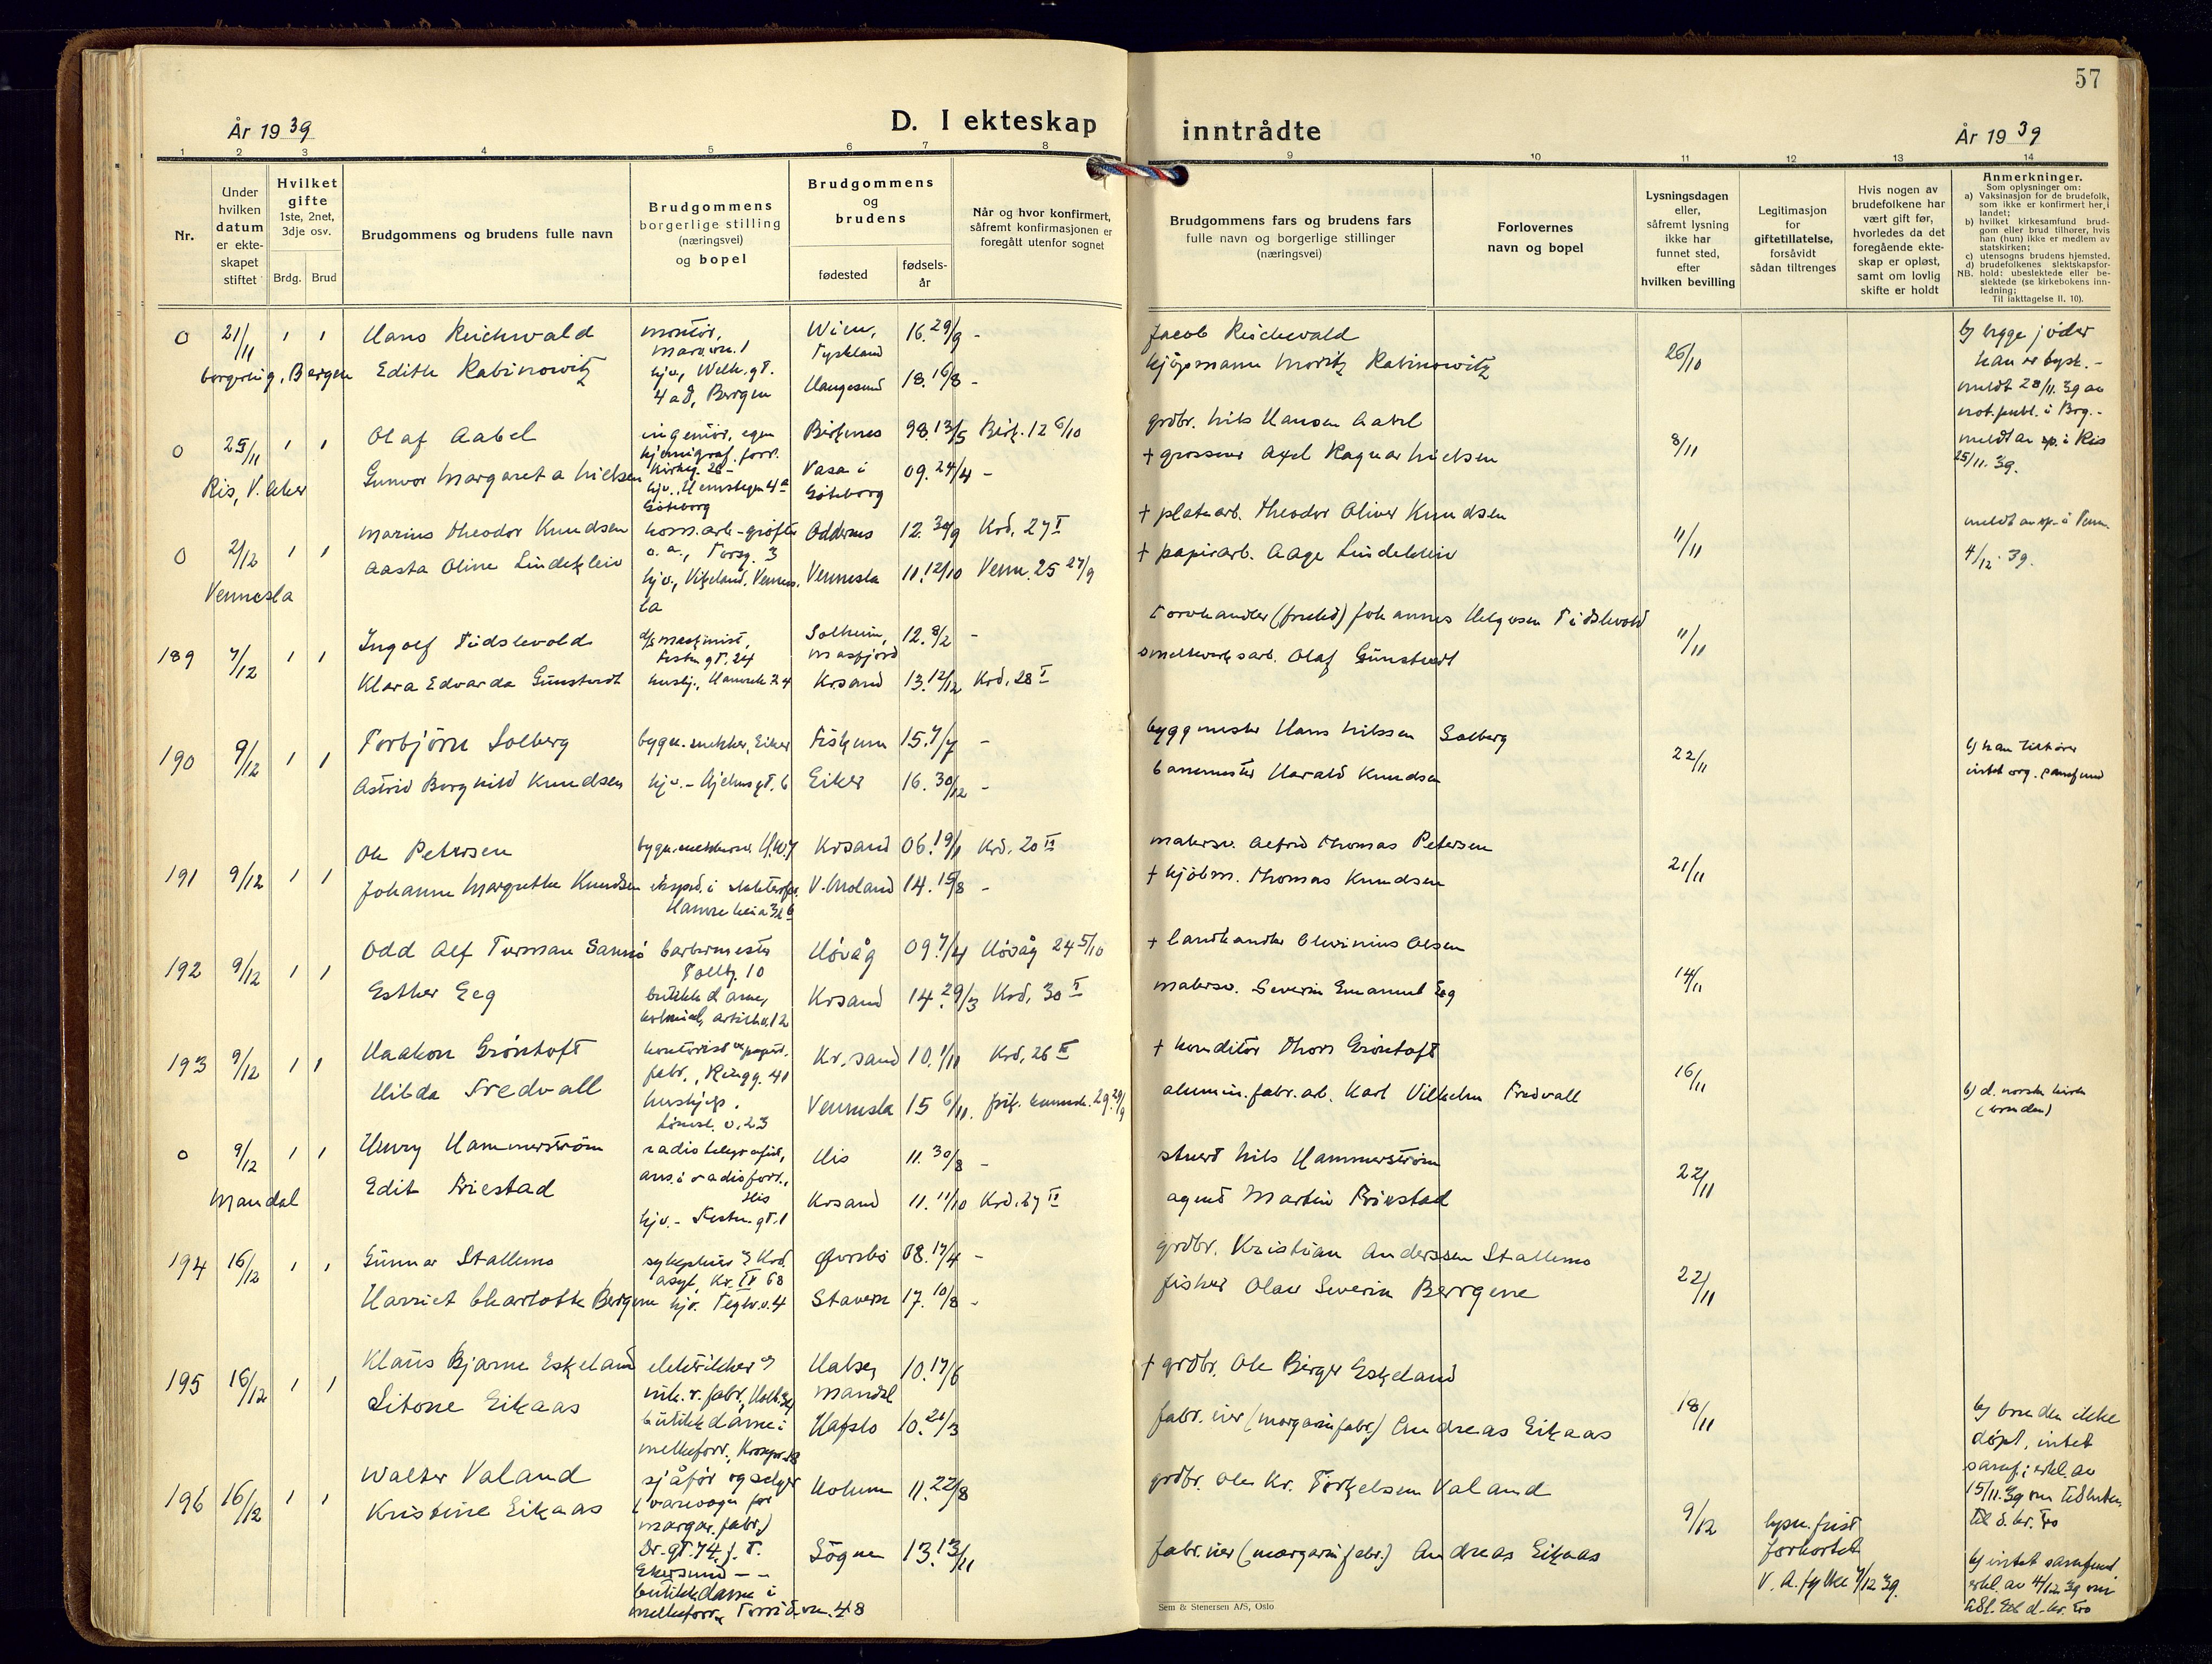 57
År 1939
D. I ekteskap
inntrådte
År 1939
1 2 3 4 5 6 7 8 9 10 11 12 13 14
Nr.
Under
hvilken
datum
er ekte-
skapet
stiftet
Hvilket
gifte
1ste, 2net,
3dje osv.
Brdg. Brud
Brudgommens og brudens fulle navn
Brudgommens
borgerlige stilling
(næringsvei)
og bopel
Brudgommens
og
brudens
fødested
fødsels-
år
Når og hvor konfirmert,
såfremt konfirmasjonen er
foregått utenfor sognet
Brudgommens fars og brudens fars
fulle navn og borgerlige stillinger
(næringsvei)
Forlovernes
navn og bopel
Lysningsdagen
eller,
såfremt lysning
ikke har
funnet sted,
efter
hvilken bevilling
Legitimasjon
for
giftetillatelse,
forsåvidt
sådan tiltrenges
Hvis nogen av
brudefolkene har
vært gift før,
hvorledes da det
foregående ekte-
skap er opløst,
samt om lovlig
skifte er holdt
Anmerkninger.
Som oplysninger om:
a) Vaksinasjon for de brudefolk,
som ikke er konfirmert her i
landet;
b) hvilket kirkesamfund brud-
gom eller brud tilhører, hvis
han (hun) ikke er medlem av
statskirken;
c) utensogns brudens hjemsted.
d) brudefolkenes slektskapsfor-
NB. hold: ubeslektede eller be-
slektede (se kirkebokens inn-
ledning;
Til iakttagelse II. 10).
0 21/11 1 1 Hans Reichwald montör, Wien, 16. 29/9 - Jacob Reichwald 26/10 b) begge jöder
Tyskland
borgerlig, Bergen Edith Rabinowitz hjv., Welh.gt. Haugesund 18. 16/8 - kjöpmann Moritz Rabinowitz han er tysk. -
4 a8, Bergen meldt 28/11.39 av
not.publ. i Brg.-
0 25/11 1 1 Olaf Aabel ingeniör, egen Birkenes 98. 13/5 Birk. 12 6/10 grdbr. Nils Hansen Aabel 8/11 meldt av sp. i Ris
25/11.39.
Ris, V. Aker Gunvor Margareta Nielsen Vasa i 09. 24/4 - + grosserer Axel Ragnar Nielsen
Göteborg Göteborg
0 2/12 1 1 Marius Theodor Knudsen Oddernes 12. 30/9 Krd. 27 I + platearb. Theodor Oliver Knudsen 11/11 meldt av sp. i Venn.
o. a., Torsg. 3
Vennesla Aasta Oline Lindekleiv hjv., Vikeland, Vennes- Vennesla 11. 12/10 Venn. 25 27/9 + papirarb. Aage Lindekleiv 4/12.39.
la
189 7/12 1 1 Ingolf Tidslevold d/s maskinist, Solheim, 12. 8/2 - Torvhandler Johannes Helgesen Tidslevold 11/11
Festn.gt. 24 Masfjord
Klara Edvarda Günstvedt hushj., 24 Krsand 13. 12/12 Krd. 28 I smelteverksarb. Olaf Günstvedt
190 9/12 1 1 Torbjörn Solberg bygn.snekker, Eiker Fiskum 15. 7/7 - byggmester Hans Nilssen Solberg 22/11 b) han tilhörer
intet org. samfund
Astrid Borghild Knudsen hjv. - 6 Eiker 16. 30/12 - banemester Harald Knudsen
191 9/12 1 1 Ole Petersen Krsand 06. 19/1 Krd. 20 II malersv. Alfred Thomas Petersen 21/11
Johanne Margrethe Knudsen V. Moland 14. 15/8 - + kjöbm. Thomas Knudsen
192 9/12 1 1 Odd Alf Turman barbermester Hövåg 09. 7/4 Hövåg 24 5/10 + landhandler Olsen 14/11
Tollb. 10
Esther Eeg butikkdame, Krsand 14. 29/3 Krd. 30 I malersv. Severin Emanuel Eeg
193 9/12 1 1 Haakon Gröntoft kontorist Kr.sand 10. 1/11 Krd. 26 II + konditor Thors Gröntoft 16/11
fabr., Ringg. 41
Hilda Fredvall hushjelp. Vennesla 15 6/11. Karl Vilhelm Fredvall b) d. norsk kirke
(bruden)
0 9/12 1 1 Henry Hammerström radiotelegrafist, His 11. 30/8 - stuert Nils Hammerström 22/11
ans. i radioforr.,
His
Mandal Edit Friestad hjv. - Festn.gt. 1 Krsand 11. 11/10 Krd. 27 II agent Martin Friestad
194 16/12 1 1 Günnar Stallemo 08. 17/4 - grdbr. Kristian Anderssen Stallemo 22/11
Harriet Charlotte Berrgene hjv. Teglv.v. 4 Stavern 17. 10/8 - fisker Olav Severin Berrgene
195 16/12 1 1 Klaus Bjarne Eskeland elektriker Halse, 10. 17/6 + grdbr. Ole Birger Eskeland 18/11
Mandal
Sitone Eikaas butikkdame i Hafslo 10. 21/3 fabr.eier (margarinfabr.) Andreas Eikaas b) bruden ikke
melkeforr., döpt, intet
samf.; erkl. av
15/11.39 om
til d. kr. tro
196 16/12 1 1 Walter Valand sjåför og selger Holum 11. 22/8 grdbr. Ole Kr. Torkelsen Valand 9/12 lysn. frist
(varevogn for forkortet
margar. fabr.) V. A. fylke 7/12 39.
Dr.gt. 74, f. t.
Ekersund - -
Kristine Eikaas butikkdame i Sögne 13. 13/11 fabr.eier (margarinfabr.) Andreas Eikaas b) intet samfund
melkeforr., 48 erkl. av 4/12 39 om
til d. kr. tro
Sem & Stenersen A/S, Oslo